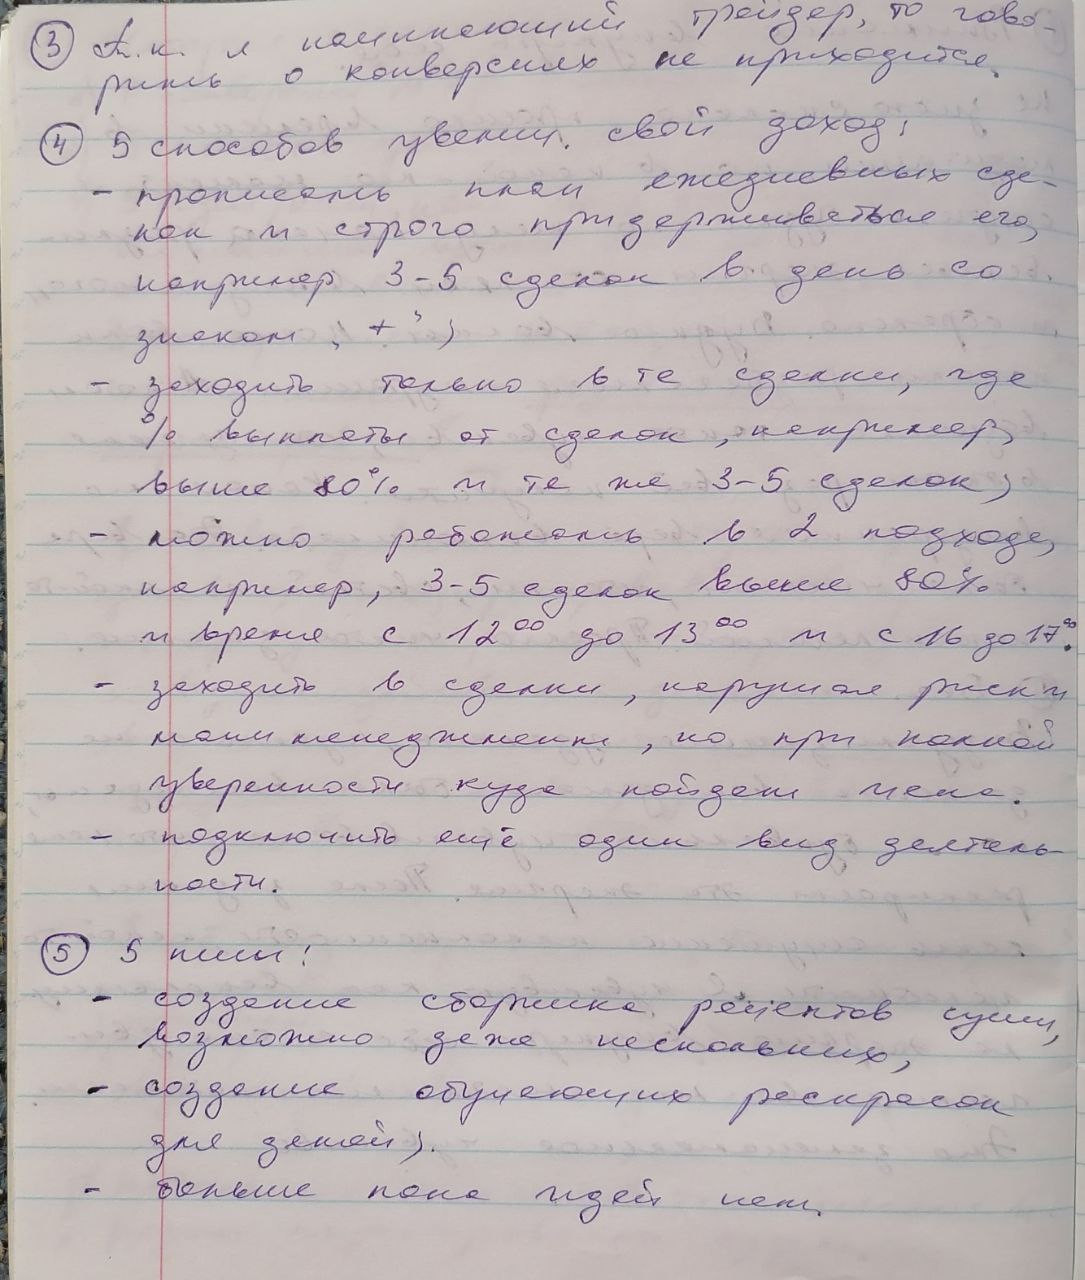 ③ Т.к. я начинающий трейдер, то гово-
рить о конверсиях не приходится.
④ 5 способов увелич. свой доход:
- прописать план ежедневных сде-
лок и строго придерживаться его,
например 3-5 сделок в день со
знаком „+";
- заходить только в те сделки, где
% выплаты от сделок, например,
выше 80% и те же 3-5 сделок;
- можно работать в 2 подхода,
например, 3-5 сделок выше 80%
и время с 12⁰⁰ до 13⁰⁰ и с 16 до 17⁰⁰.
- заходить в сделки, нарушая риск и
мани менеджмент, но при полной
уверенности куда пойдет цена.
- подключить ещё один вид деятель-
ности.
⑤ 5 ниш:
- создание сборника рецептов суши,
возможно даже нескольких,
- создание обучающих раскрасок
для детей).
- больше пока идей нет.